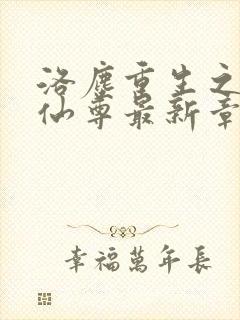 洛塵重生之
仙尊最新章
幸福萬年長